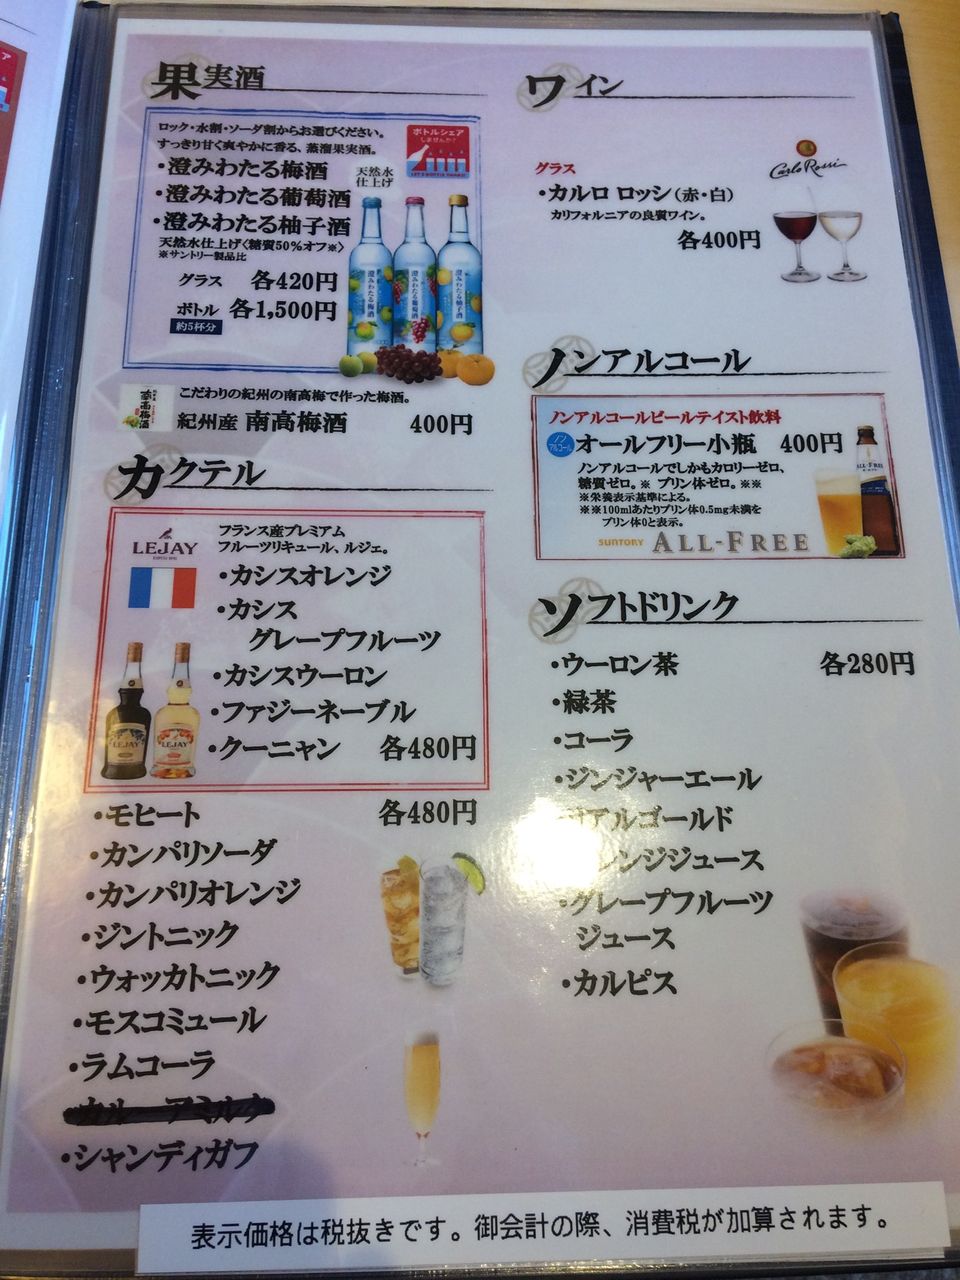 果実酒
ロック・水割・ソーダ割からお選びください。
すっきり甘く爽やかに香る、蒸溜果実酒。
ボトルシェア
しませんか?
・澄みわたる梅酒
・澄みわたる葡萄酒
・澄みわたる柚子酒
天然水
仕上げ
天然水仕上げ〈糖質50%オフ※〉
※サントリー製品比
グラス 各420円
ボトル 各1,500円
約5杯分
澄みわたる梅酒
澄みわたる葡萄酒
澄みわたる柚子酒
南高梅酒
こだわりの紀州の南高梅で作った梅酒。
紀州産 南高梅酒 400円
カクテル
LEJAY
フランス産プレミアム
フルーツリキュール、ルジェ。
・カシスオレンジ
・カシス
グレープフルーツ
・カシスウーロン
・ファジーネーブル
・クーニャン 各480円
LEJAY
LEJAY
・モヒート 各480円
・カンパリソーダ
・カンパリオレンジ
・ジントニック
・ウォッカトニック
・モスコミュール
・ラムコーラ
・シャンディガフ
ワイン
グラス
・カルロ ロッシ(赤・白)
カリフォルニアの良質ワイン。
各400円
Carlo Rossi
ノンアルコール
ノンアルコールビールテイスト飲料
ノン
アルコール
オールフリー小瓶 400円
ノンアルコールでしかもカロリーゼロ、
糖質ゼロ。※ プリン体ゼロ。※※
※栄養表示基準による。
※※100mlあたりプリン体0.5mg未満を
プリン体0と表示。
SUNTORY ALL-FREE
ALL-FREE
ソフトドリンク
・ウーロン茶 各280円
・緑茶
・コーラ
・ジンジャーエール
アルゴールド
レンジジュース
・グレープフルーツ
ジュース
・カルピス
表示価格は税抜きです。御会計の際、消費税が加算されます。